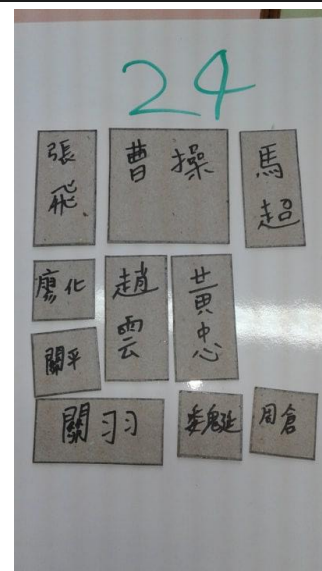 24
張飛
曹操
馬超
廖化
趙雲
黃忠
關平
關羽
魏延
周倉